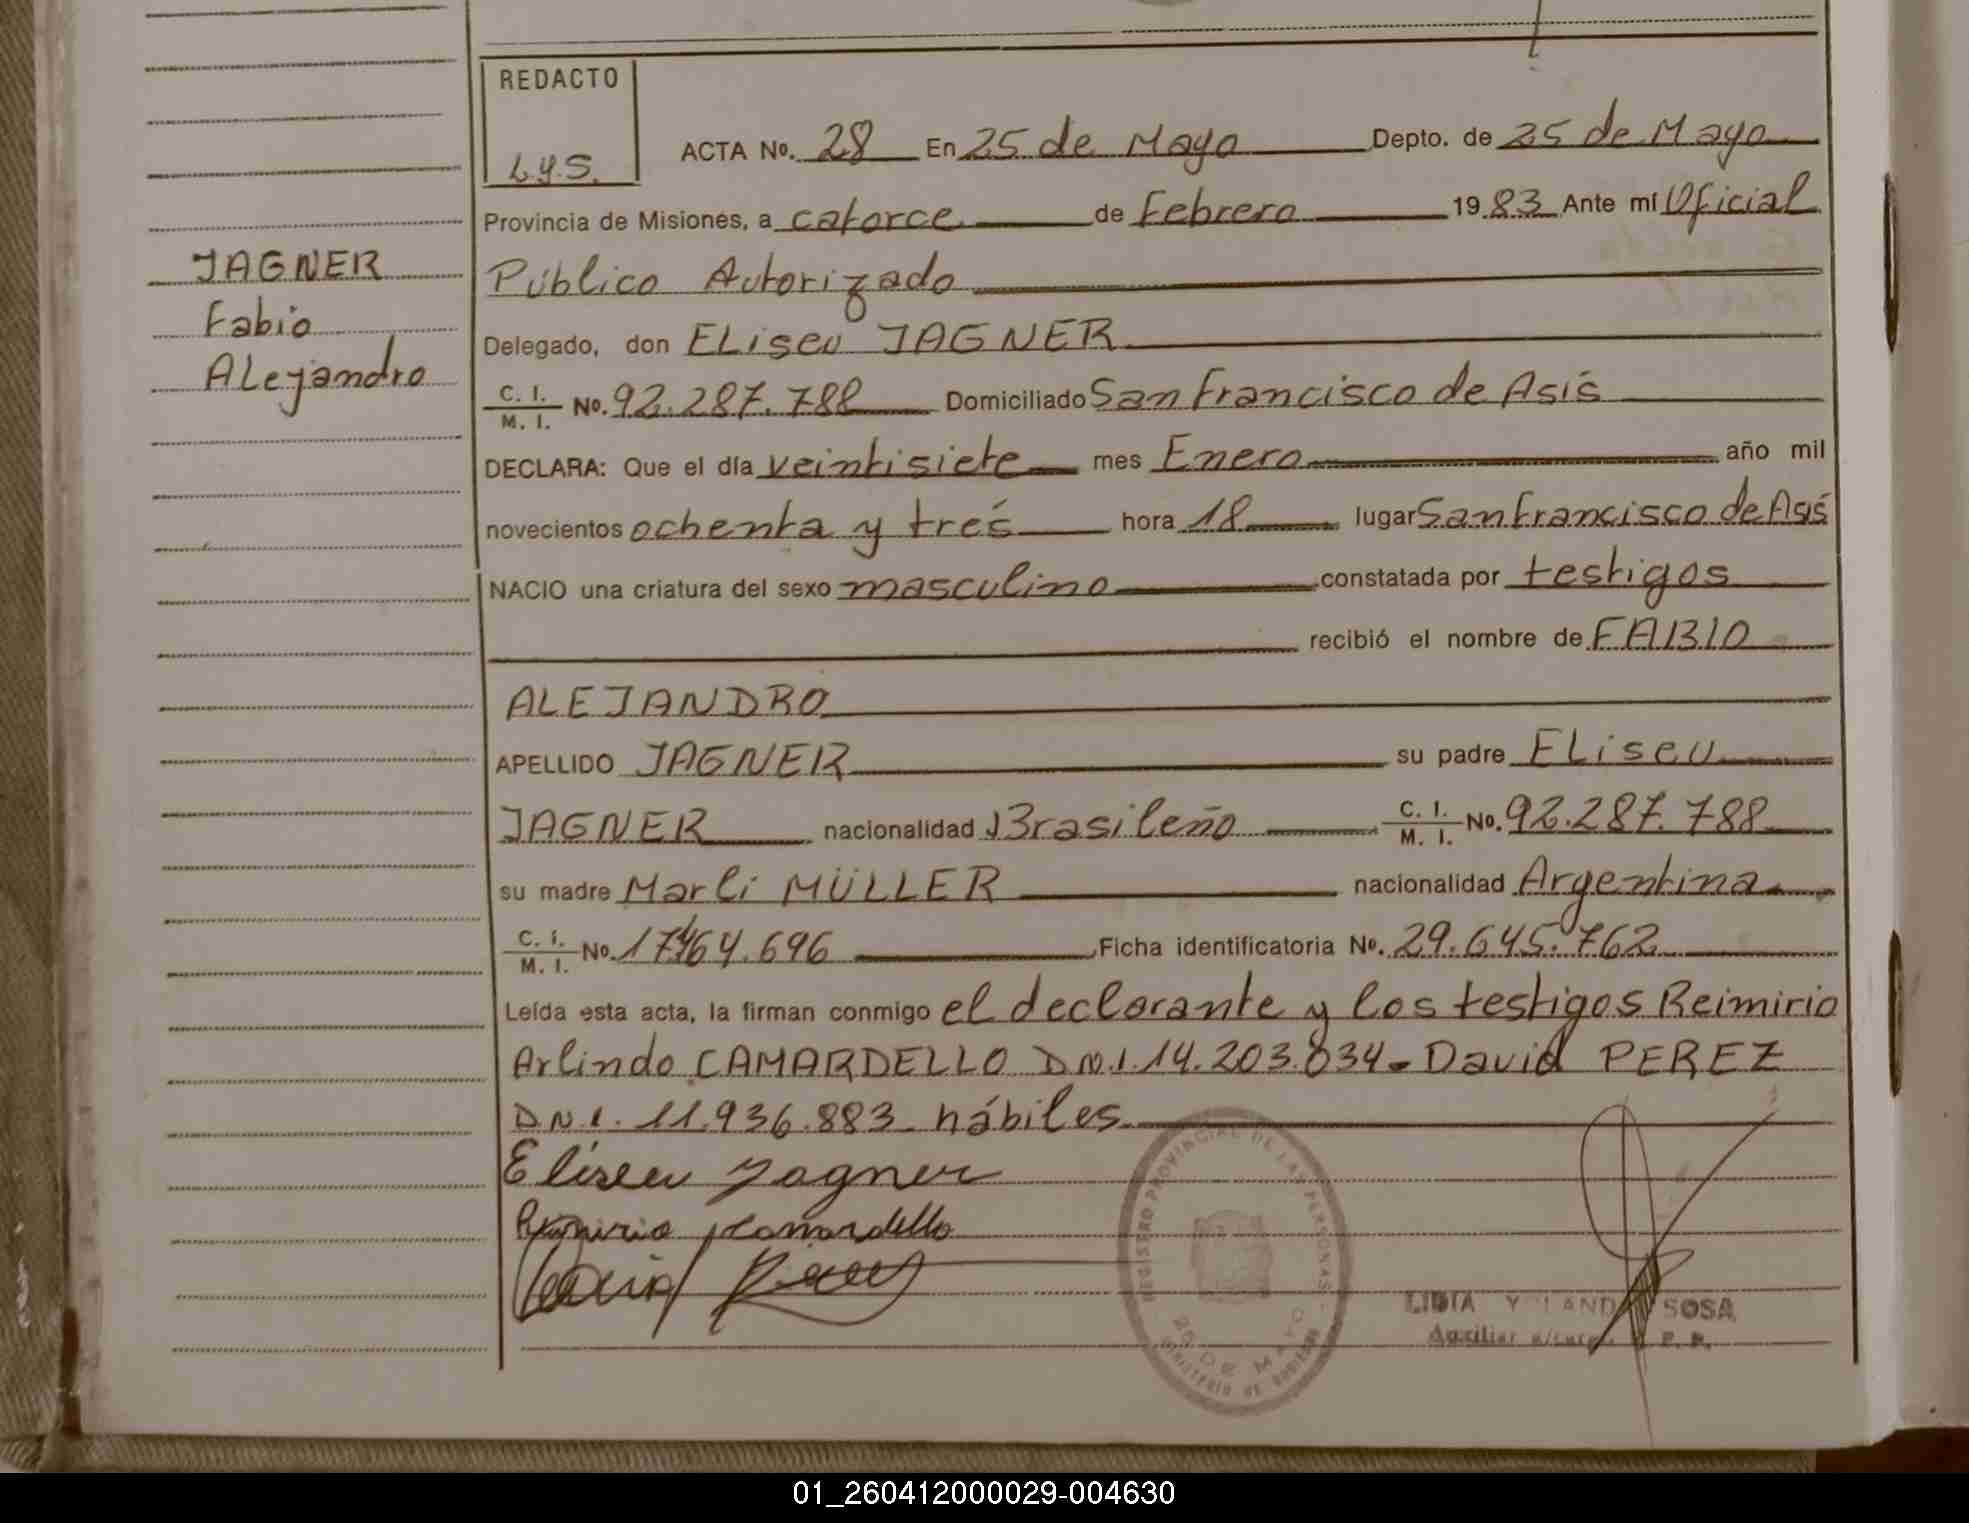 REDACTO
L.y.S.
ACTA No. 28 En 25 de Mayo Depto. de 25 de Mayo
Provincia de Misiones, a catorce de Febrero 1983 Ante mí Oficial
Público Autorizado
JAGNER
Fabio
ALejandro
Delegado, don ELiseu JAGNER
C. I. / M. I. No. 92.287.788 Domiciliado San Francisco de Asís
DECLARA: Que el día veintisiete mes Enero año mil
novecientos ochenta y tres hora 18 lugar San Francisco de Asís
NACIO una criatura del sexo masculino constatada por testigos
recibió el nombre de FABIO
ALEJANDRO
APELLIDO JAGNER su padre ELiseu
JAGNER nacionalidad Brasileño C. I. / M. I. No. 92.287.788
su madre Marli MÜLLER nacionalidad Argentina
C. I. / M. I. No. Ficha identificatoria No. 29.645.762
Leída esta acta, la firman conmigo el declarante y los testigos Reimirio
Arlindo CAMARDELLO D.N.I. 14.203.834- David PEREZ
D.N.I. 11.936.883 hábiles
Eliseu Jagner
Reimirio Camardello
David Perez
REGISTRO PROVINCIAL DE LAS PERSONAS
25 DE MAYO
MINISTERIO DE GOBIERNO
LIDIA YOLANDA SOSA
Auxiliar
01_260412000029-004630